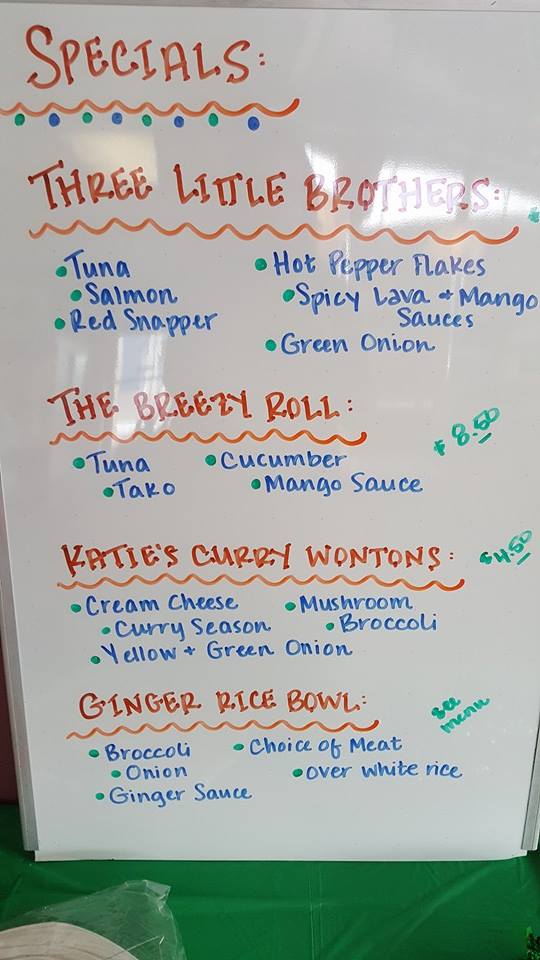 SPECIALS:
THREE LITTLE BROTHERS:
• Tuna
• Hot Pepper Flakes
• Salmon
• Spicy Lava + Mango
Sauces
• Red Snapper
• Green Onion
THE BREEZY ROLL:
$8.50
• Tuna
• Cucumber
• Tako
• Mango Sauce
KATIE'S CURRY WONTONS:
$4.50
• Cream Cheese
• Mushroom
• Curry Season
• Broccoli
• Yellow + Green Onion
GINGER RICE BOWL:
see
menu
• Broccoli
• Choice of Meat
• Onion
• over white rice
• Ginger Sauce